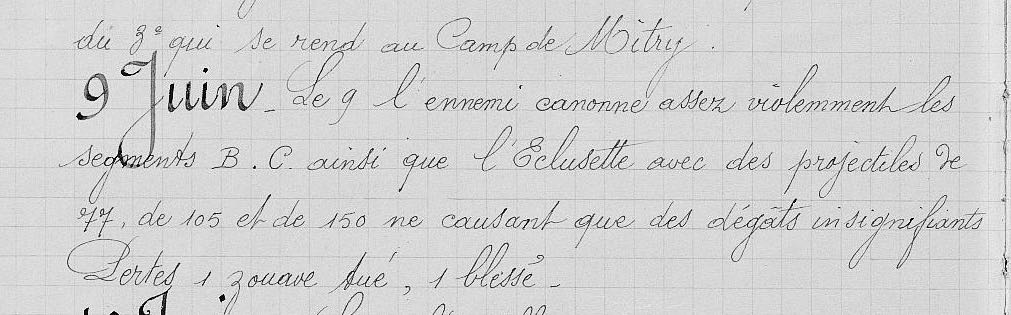 du 3e qui se rend au Camp de Mitry.
9 Juin - Le 9 l'ennemi canonne assez violemment les
segments B. C. ainsi que l'Eclusette avec des projectiles de
77, de 105 et de 150 ne causant que des dégâts insignifiants
Pertes 1 zouave tué, 1 blessé -